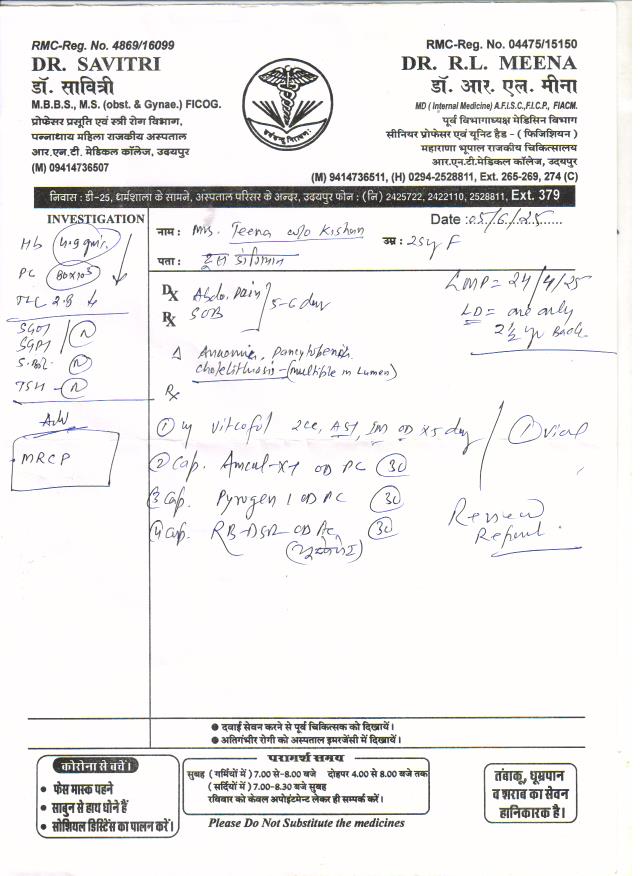 RMC-Reg. No. 4869/16099
DR. SAVITRI
डॉ. सावित्री
M.B.B.S., M.S. (obst. & Gynae.) FICOG.
प्रोफेसर प्रसूति एवं स्त्री रोग विभाग,
पन्नाधाय महिला राजकीय अस्पताल
आर.एन.टी. मेडिकल कॉलेज, उदयपुर
(M) 09414736507
RMC-Reg. No. 04475/15150
DR. R.L. MEENA
डॉ. आर. एल. मीना
MD ( Internal Medicine) A.F.I.S.C.,F.I.C.P., FIACM.
पूर्व विभागाध्यक्ष मेडिसिन विभाग
सीनियर प्रोफेसर एवं यूनिट हैड - ( फिजिशियन )
महाराणा भूपाल राजकीय चिकित्सालय
आर.एन.टी.मेडिकल कॉलेज, उदयपुर
(M) 9414736511, (H) 0294-2528811, Ext. 265-269, 274 (C)
निवास : डी-25, धर्मशाला के सामने, अस्पताल परिसर के अन्दर, उदयपुर फोन : (नि) 2425722, 2422110, 2528811, Ext. 379
INVESTIGATION
Hb 4.9 gm%
PC 80x10³
TLC 2.8 ↓
SGOT
SGPT (N)
S.Bil. (N)
TSH - (N)
Adv
MRCP
Date :05/6/25
नाम : Mrs. Teena w/o Kishun
उम्र : 25y F
पता :
LMP = 24/4/25
LD = one only
2½ yr Back
Dx Abdo. Pain
Rx SOB
5-6 day
Δ Anaemia, Pancytopenia
cholelithiasis - (multiple in Lumen)
Rx
① Inj Vitcoful 2cc, AST, IM OD x 5 day / ① vial
② Cap. Amcul-XT OD PC (30)
③ Cap. Pyrogen 1 OD PC (30)
④ Cap. RB-DSR OD AC (30)
Review
Report
● दवाई सेवन करने से पूर्व चिकित्सक को दिखायें।
● अतिगंभीर रोगी को अस्पताल इमरजेंसी में दिखायें।
कोरोना से बचें।
• फेस मास्क पहने
• साबुन से हाथ धोने हैं
• सोशियल डिस्टिेंस का पालन करें।
परामर्श समय
सुबह ( गर्मियों में ) 7.00 से-8.00 बजे दोहपर 4.00 से 8.00 बजे तक
( सर्दियों में ) 7.00-8.30 बजे सुबह
रविवार को केवल अपोइंटमेन्ट लेकर ही सम्पर्क करें।
Please Do Not Substitute the medicines
तंबाकू, धूम्रपान
व शराब का सेवन
हानिकारक है।